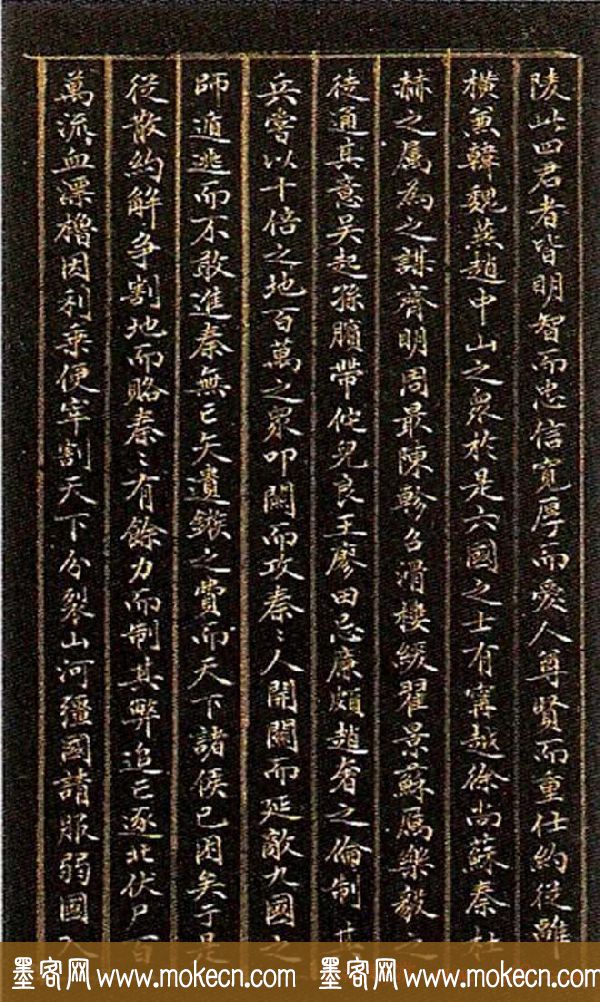 陵此四君者皆明智而忠信寬厚而愛人尊賢而重仕約從離
橫兼韓魏燕趙中山之衆於是六國之士有甯越徐尚蘇秦杜
赫之属為之謀齊明周最陳軫召滑樓緩翟景蘇厲樂毅之
徒通其意吳起孫臏帶佗兒良王廖田忌廉頗趙奢之倫制其
兵嘗以十倍之地百萬之衆叩關而攻秦〻人開關而延敵九國之
師遁逃而不敢進秦無亡矢遺鏃之費而天下諸侯已困矣于是
從散約解爭割地而賂秦〻有餘力而制其弊追亡逐北伏尸百
萬流血漂櫓因利乘便宰割天下分裂山河彊國請服弱國入
墨客网 www.mokecn.com 墨客网 www.mokecn.com